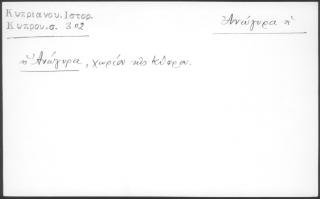 Κυπριανου.Ιστορ.
Κυπρου.σ. 302
Ἀνώγυρα ἡ
ἡ Ἀνώγυρα, χωρίον τῆς Κύπρου.